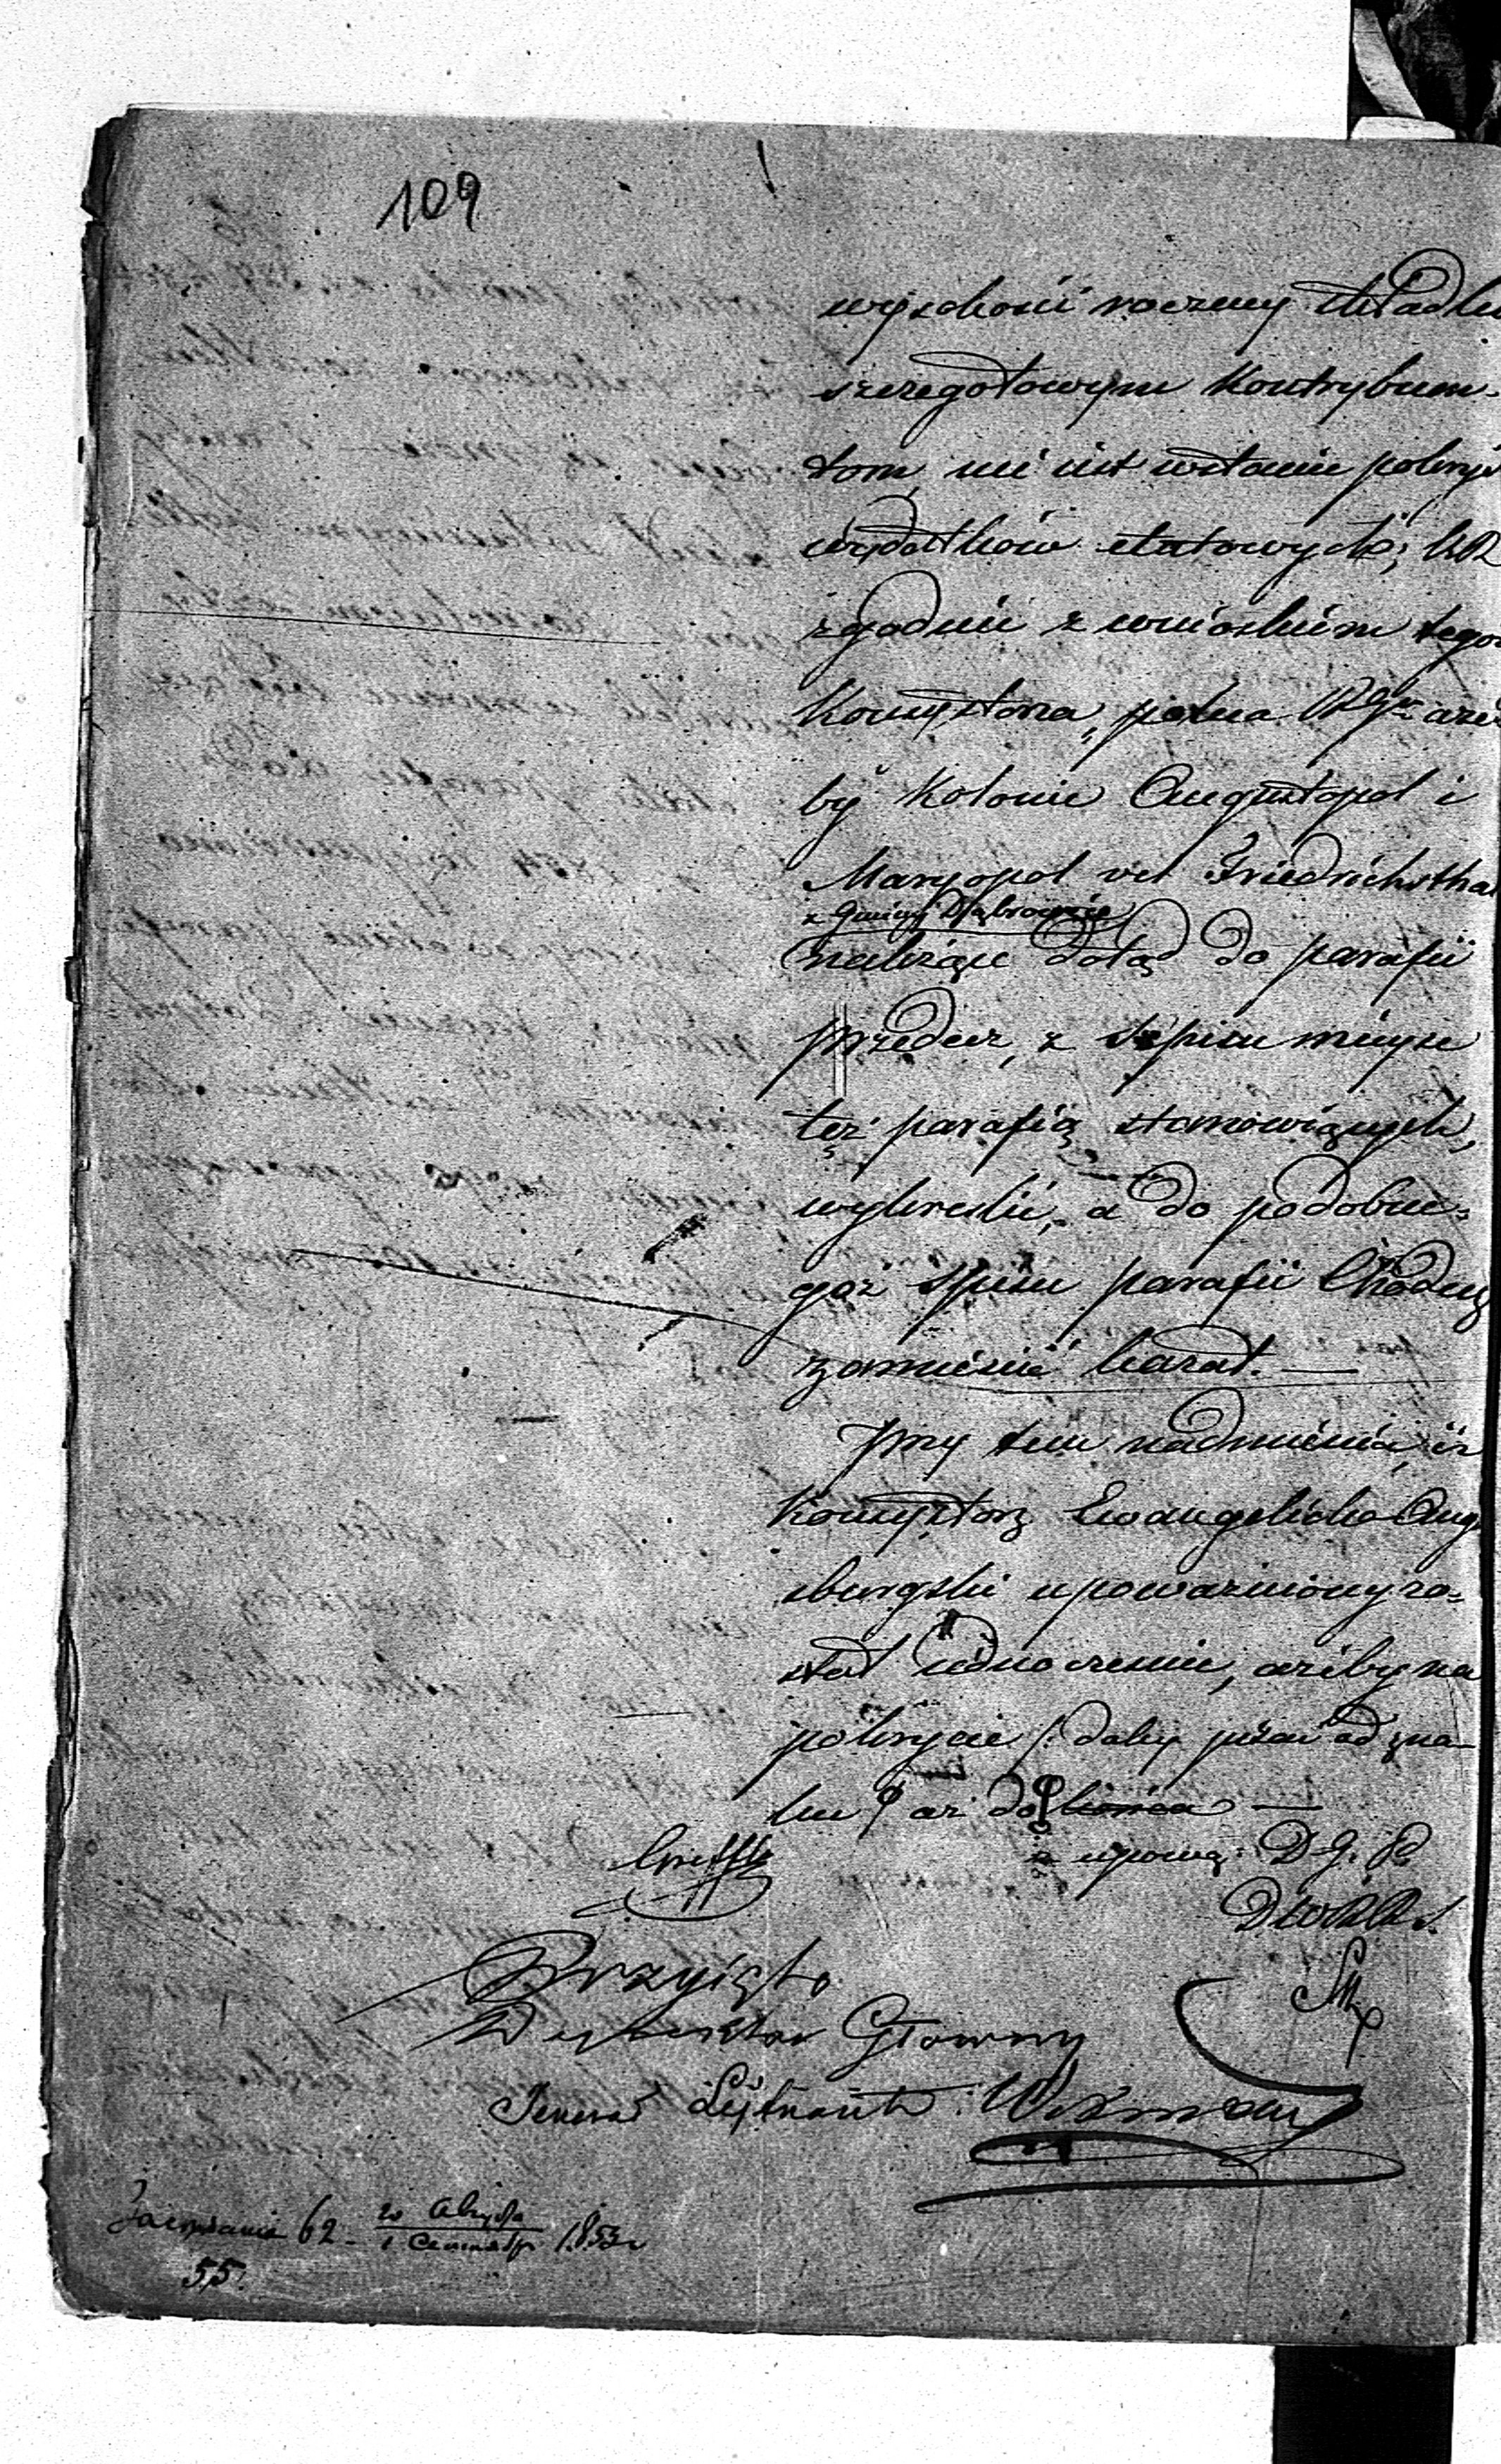 109
wysokości roczney składki
szczegołowym Kontrybuen-
tom, nie jest wstanie pokryć
wydatków etatowych; KR
zgodnie z wnioskiem tegoż
Konsystorza, poleca RGu aże
by Kolonie Augustopol i
Maryopol vel Friedrichsthal
z Gminy Dąbrowice
należące dotąd do parafii
Przedecz, z spisu mieysc
też parafią stanowiących,
wykreslić, a do podobne-
goż spisu parafii Chodecz
zamieścić kazał. —
Przy tem nadmienia, iż
Konsystorz Ewangelicko Aug
sburgski upoważniony zo-
stał jednocześnie, ażeby na
pokrycie /: daley pisać od zna-
ku aż do końca —
z upoważ: D. G. P.
Przyięto
Dyrektor Głowny
Jenerał Lejtnant:
62 - 20 / 1 1853
55.